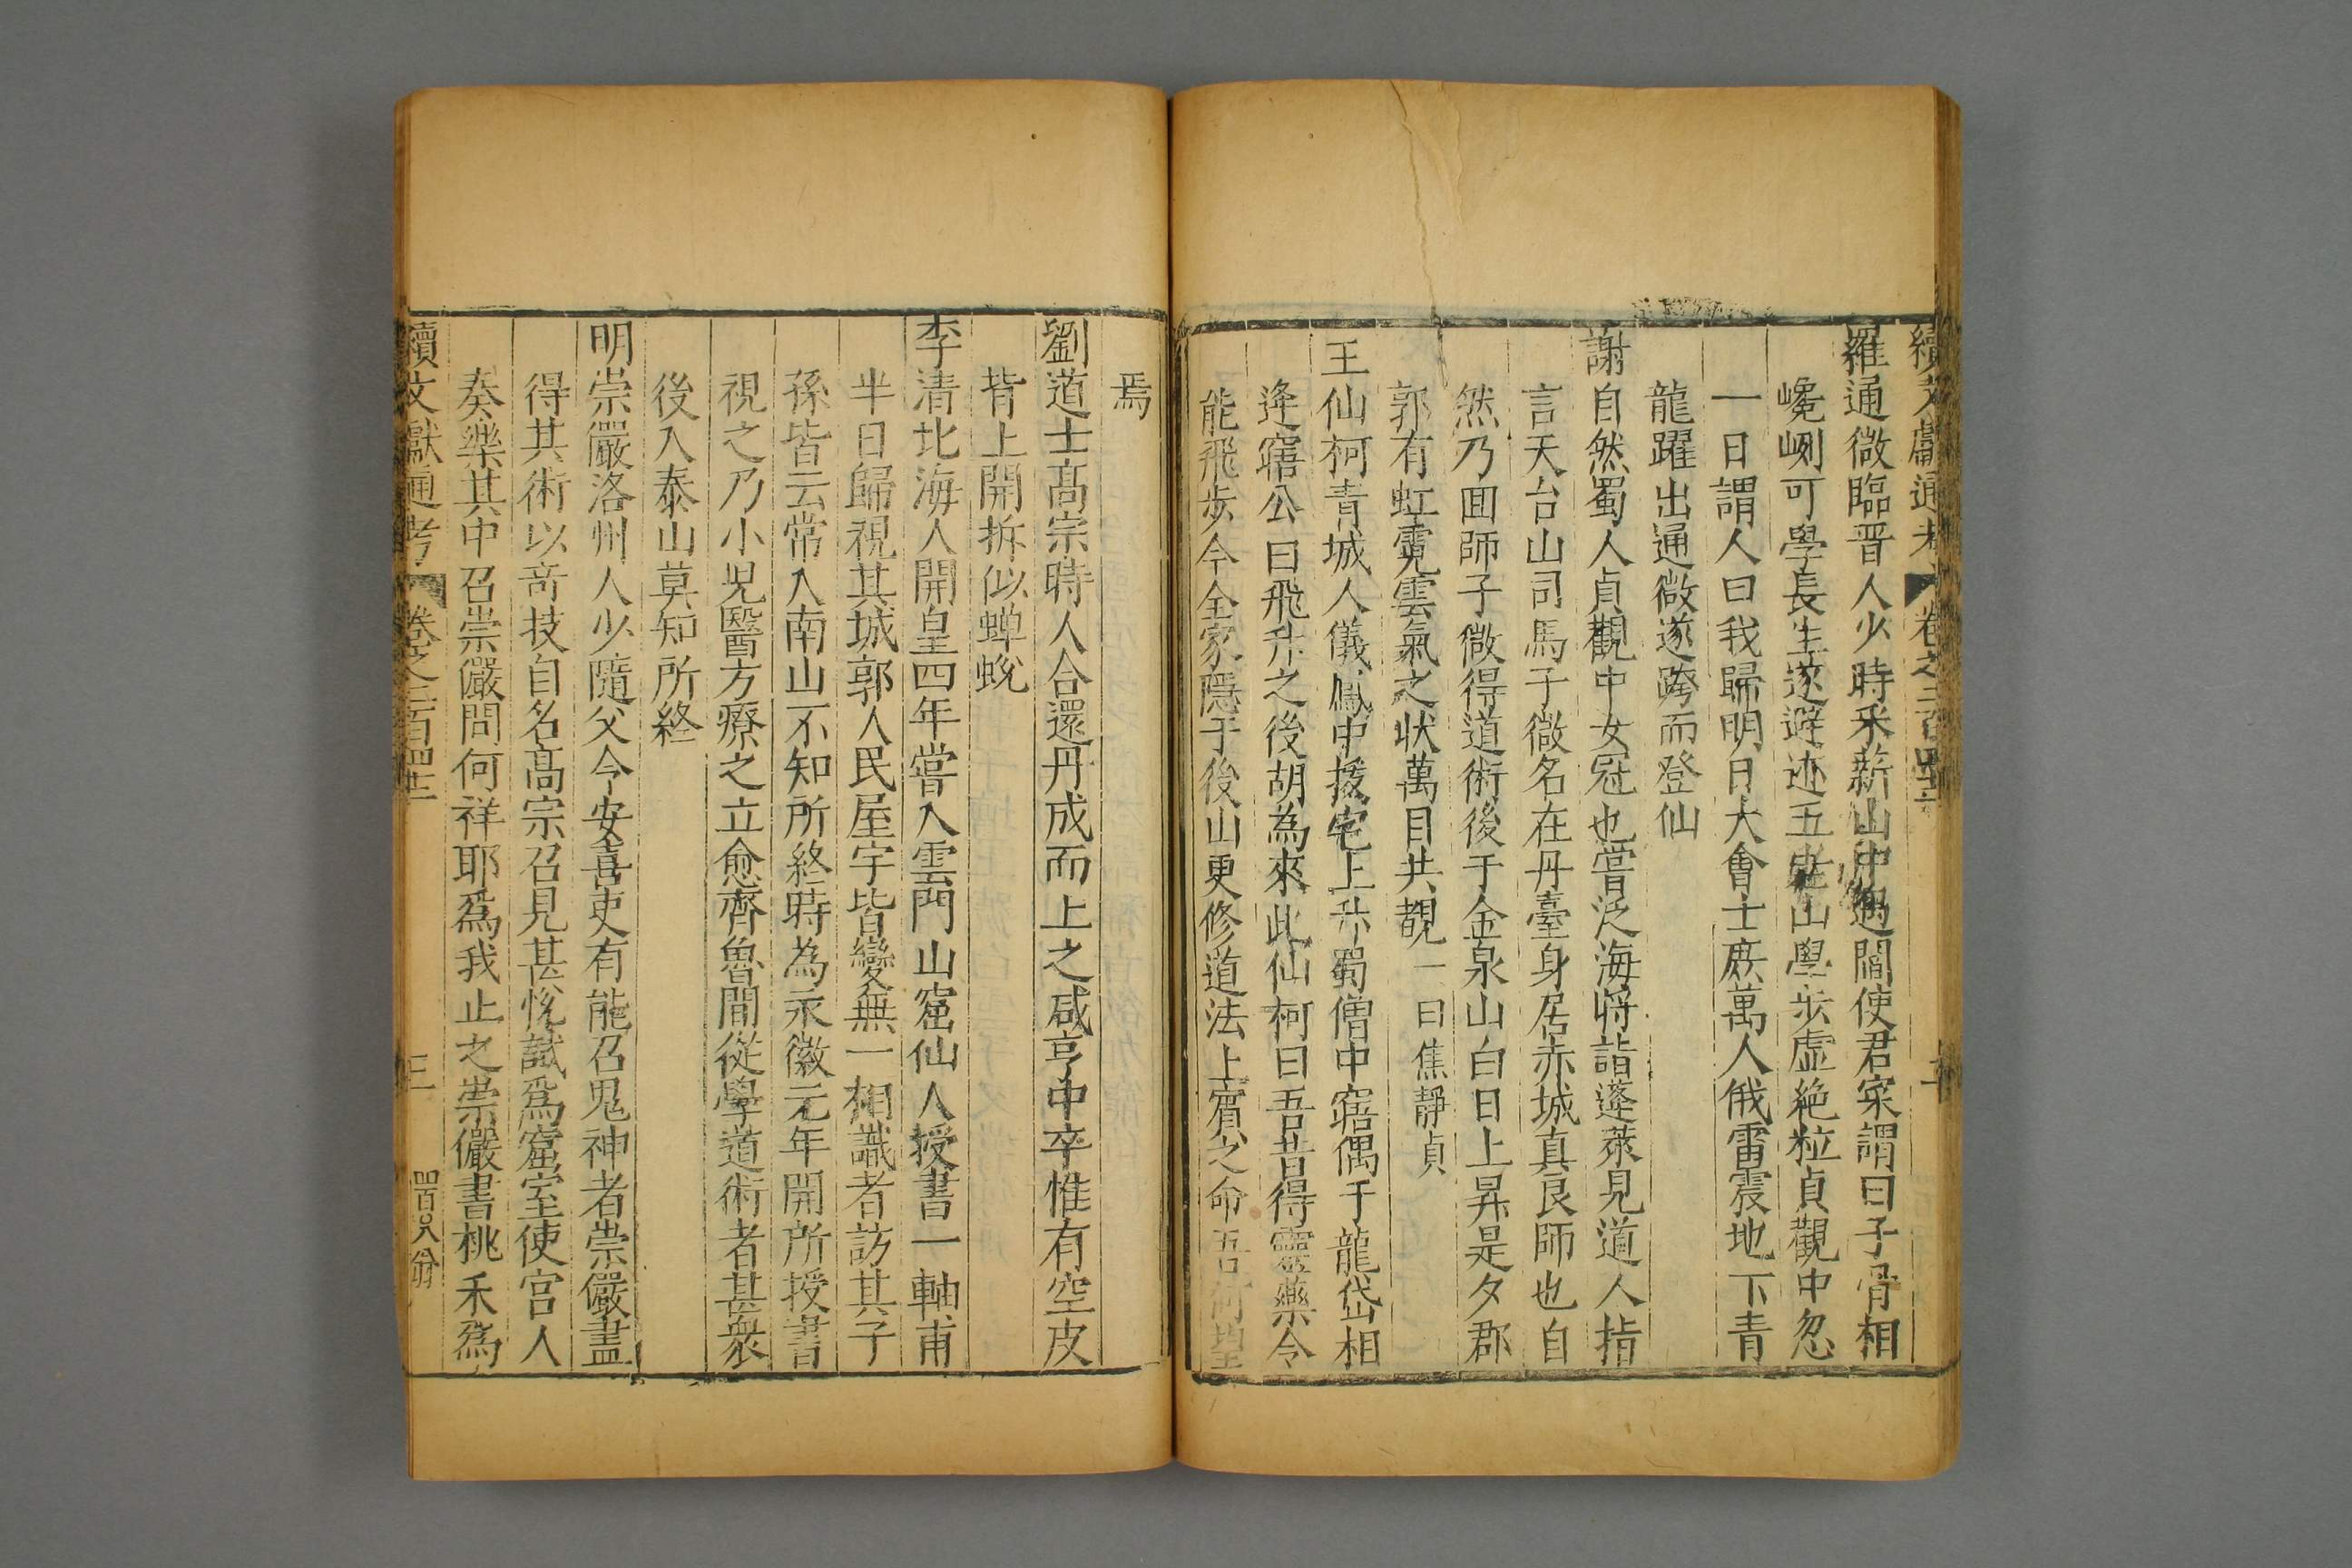 續文獻通考 卷之二百四十二
羅通微臨晋人少時釆薪山中遇閭使君寀謂曰子骨相
巉峢可學長生遂避迹五老山學步虚絶粒貞觀中忽
一日謂人曰我歸明日大會士庶萬人俄雷震地下青
龍躍出通微遂跨而登仙
謝自然蜀人貞觀中女冠也嘗泛海將詣蓬萊見道人指
言天台山司馬子微名在丹臺身居赤城真良師也自
然乃囬師子微得道術後于金泉山白日上昇是夕郡
郭有虹霓雲氣之状萬目共覩一曰焦靜貞
王仙柯青城人儀鳳中援宅上升蜀僧中寤偶于龍岱相
逄寤公曰飛升之後胡為來此仙柯曰吾昔得靈藥令
能飛步今全家隱于後山更修道法上賓之命吾何望
焉
劉道士髙宗時人合還丹成而上之咸亨中卒惟有空皮
背上開拆似蟬蛻
李清北海人開皇四年嘗入雲門山窟仙人授書一軸甫
半日歸視其城郭人民屋宇皆變無一相識者訪其子
孫皆云常入南山不知所終時為永徽元年開所授書
視之乃小児醫方療之立愈齊魯間從學道術者甚衆
後入泰山莫知所終
明崇儼洛州人少隨父令安喜吏有能召鬼神者崇儼盡
得其術以竒技自名髙宗召見甚悅試爲窟室使宫人
奏樂其中召崇儼問何祥耶爲我止之崇儼書桃禾爲
續文獻通考 卷之二百四十二 三 四百八 翁